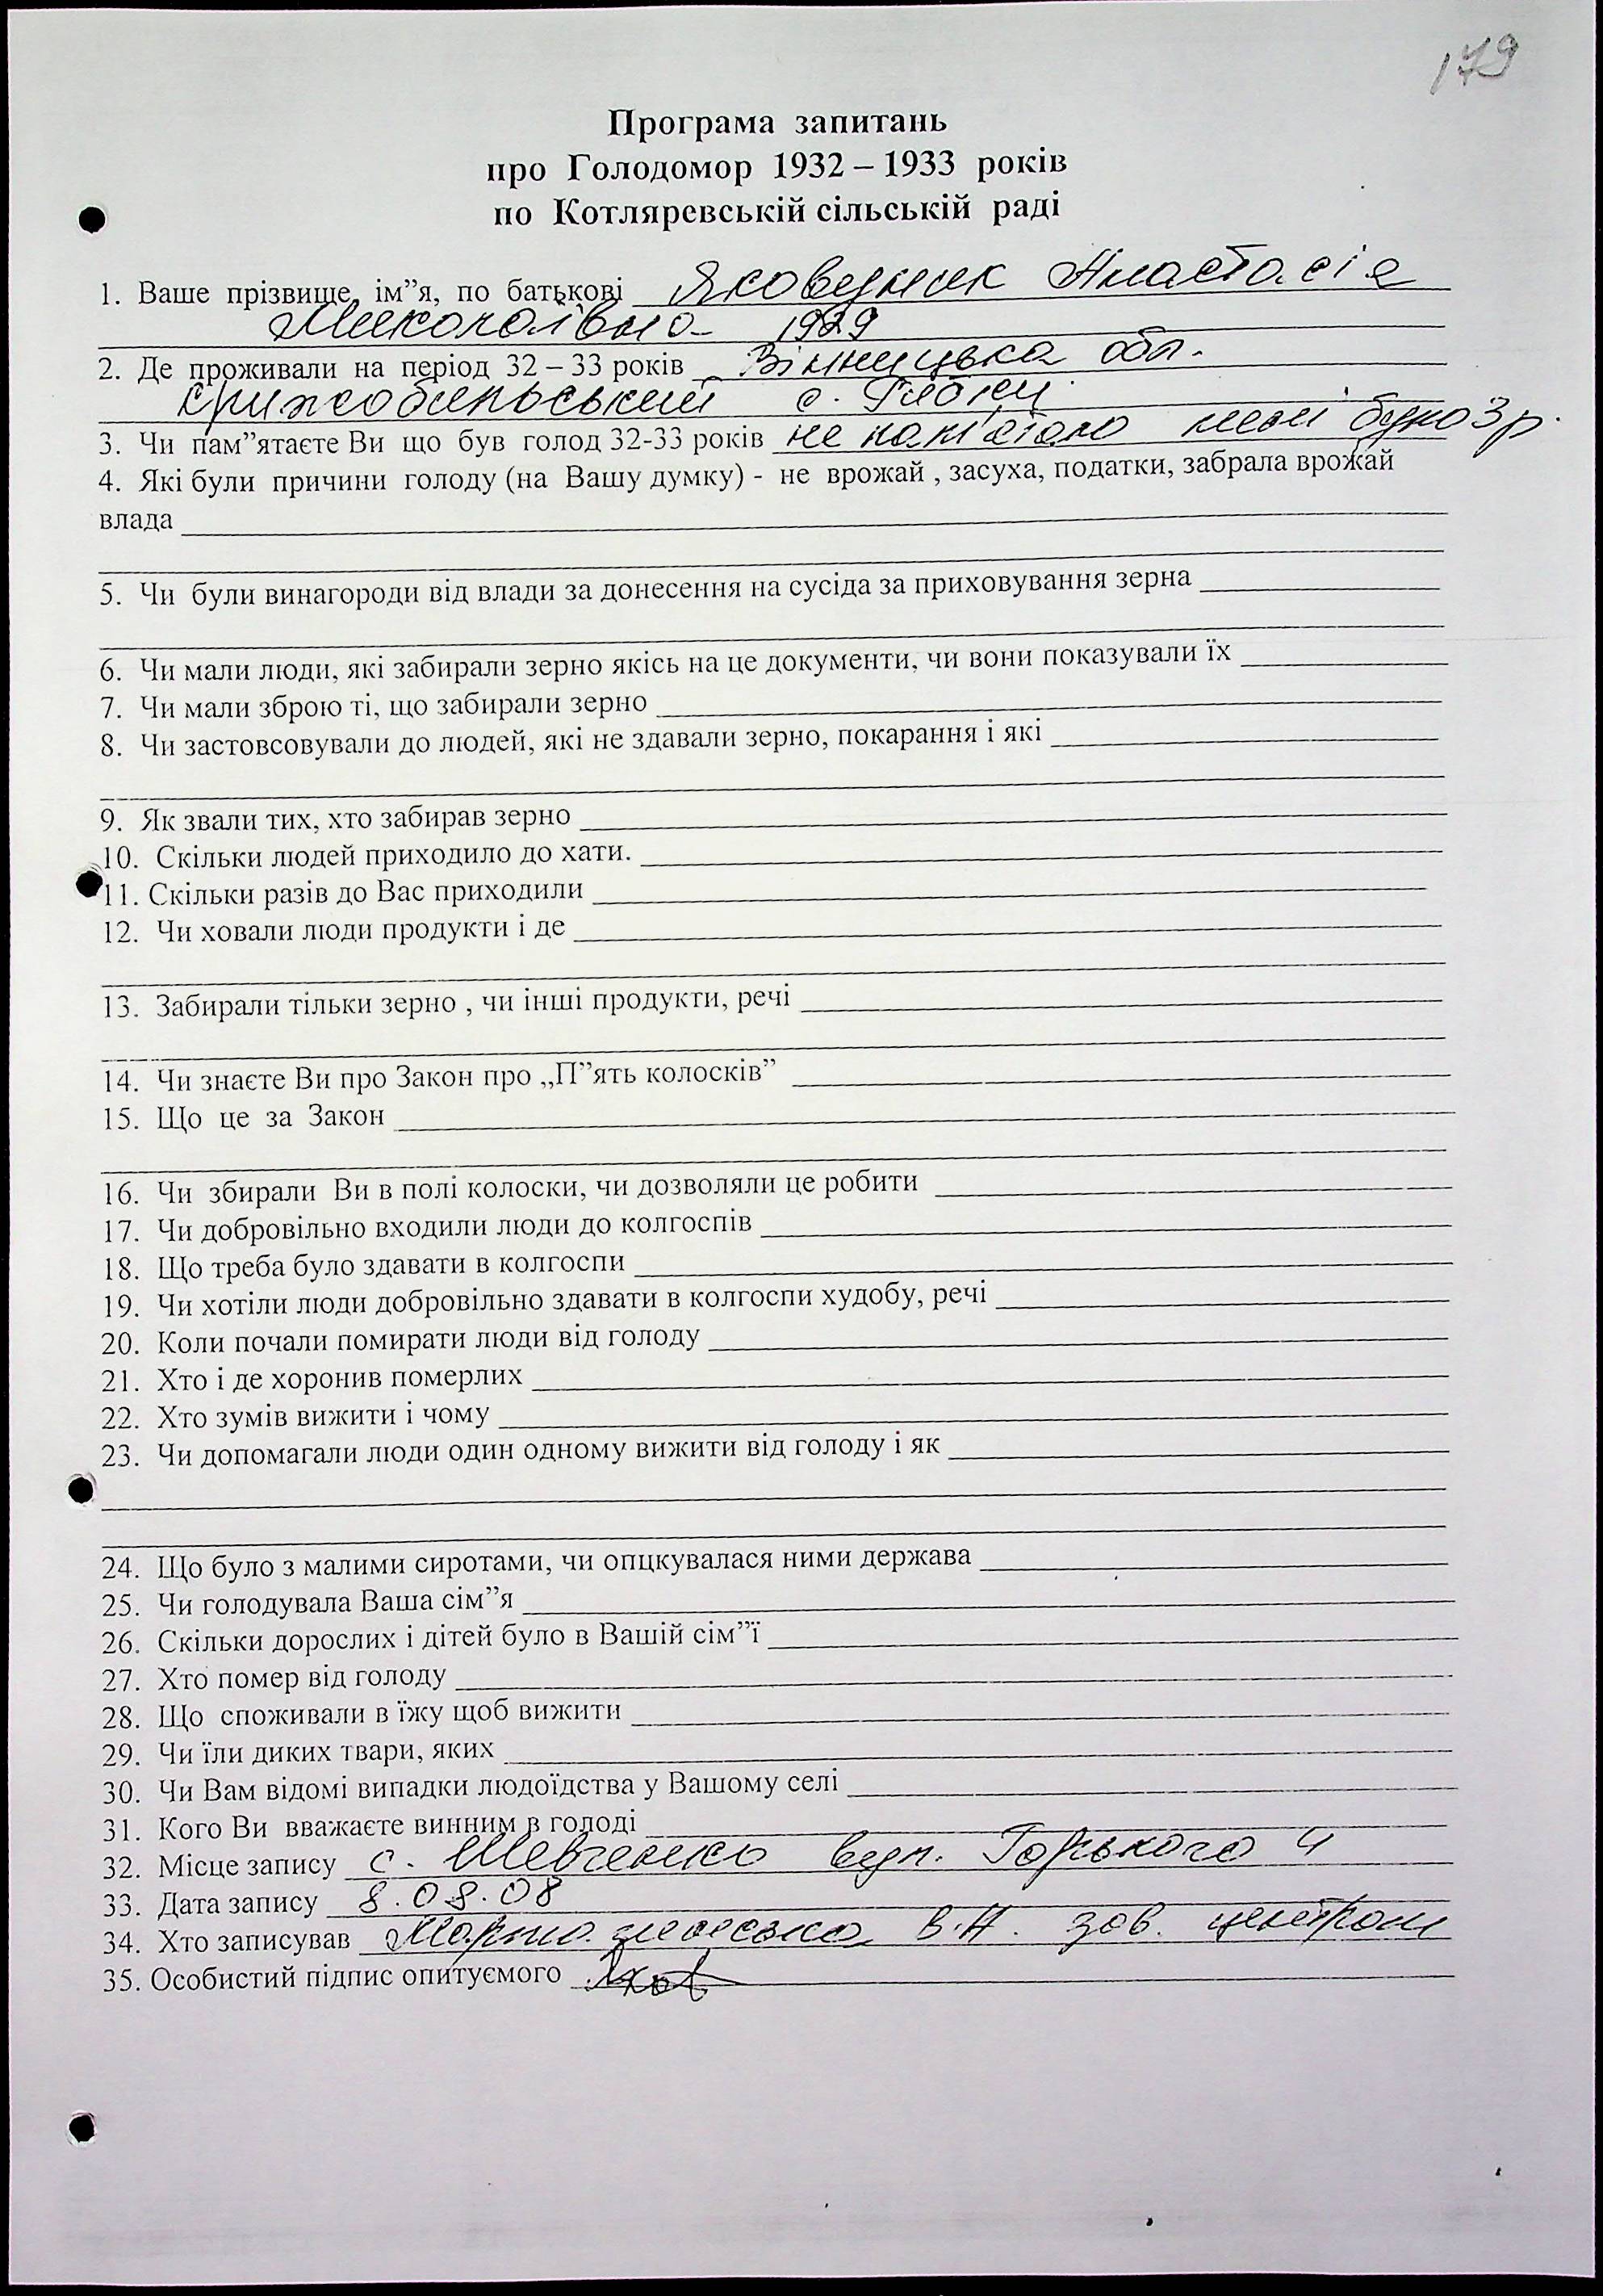 179
Програма запитань
про Голодомор 1932 – 1933 років
по Котляревській сільській раді
1. Ваше прізвище, ім”я, по батькові Анастасія
Миколаївна 1929
2. Де проживали на період 32 – 33 років Вінницька обл.
с.
3. Чи пам”ятаєте Ви що був голод 32-33 років не пам'ятаю мені було 3 р.
4. Які були причини голоду (на Вашу думку) - не врожай , засуха, податки, забрала врожай
влада
5. Чи були винагороди від влади за донесення на сусіда за приховування зерна
6. Чи мали люди, які забирали зерно якісь на це документи, чи вони показували їх
7. Чи мали зброю ті, що забирали зерно
8. Чи застовсовували до людей, які не здавали зерно, покарання і які
9. Як звали тих, хто забирав зерно
10. Скільки людей приходило до хати.
11. Скільки разів до Вас приходили
12. Чи ховали люди продукти і де
13. Забирали тільки зерно , чи інші продукти, речі
14. Чи знаєте Ви про Закон про „П”ять колосків”
15. Що це за Закон
16. Чи збирали Ви в полі колоски, чи дозволяли це робити
17. Чи добровільно входили люди до колгоспів
18. Що треба було здавати в колгоспи
19. Чи хотіли люди добровільно здавати в колгоспи худобу, речі
20. Коли почали помирати люди від голоду
21. Хто і де хоронив померлих
22. Хто зумів вижити і чому
23. Чи допомагали люди один одному вижити від голоду і як
24. Що було з малими сиротами, чи опцкувалася ними держава
25. Чи голодувала Ваша сім”я
26. Скільки дорослих і дітей було в Вашій сім”ї
27. Хто помер від голоду
28. Що споживали в їжу щоб вижити
29. Чи їли диких твари, яких
30. Чи Вам відомі випадки людоїдства у Вашому селі
31. Кого Ви вважаєте винним в голоді
32. Місце запису с. Шевченко вул. Горького 4
33. Дата запису 8.08.08
34. Хто записував В.Н. зав. центром
35. Особистий підпис опитуємого